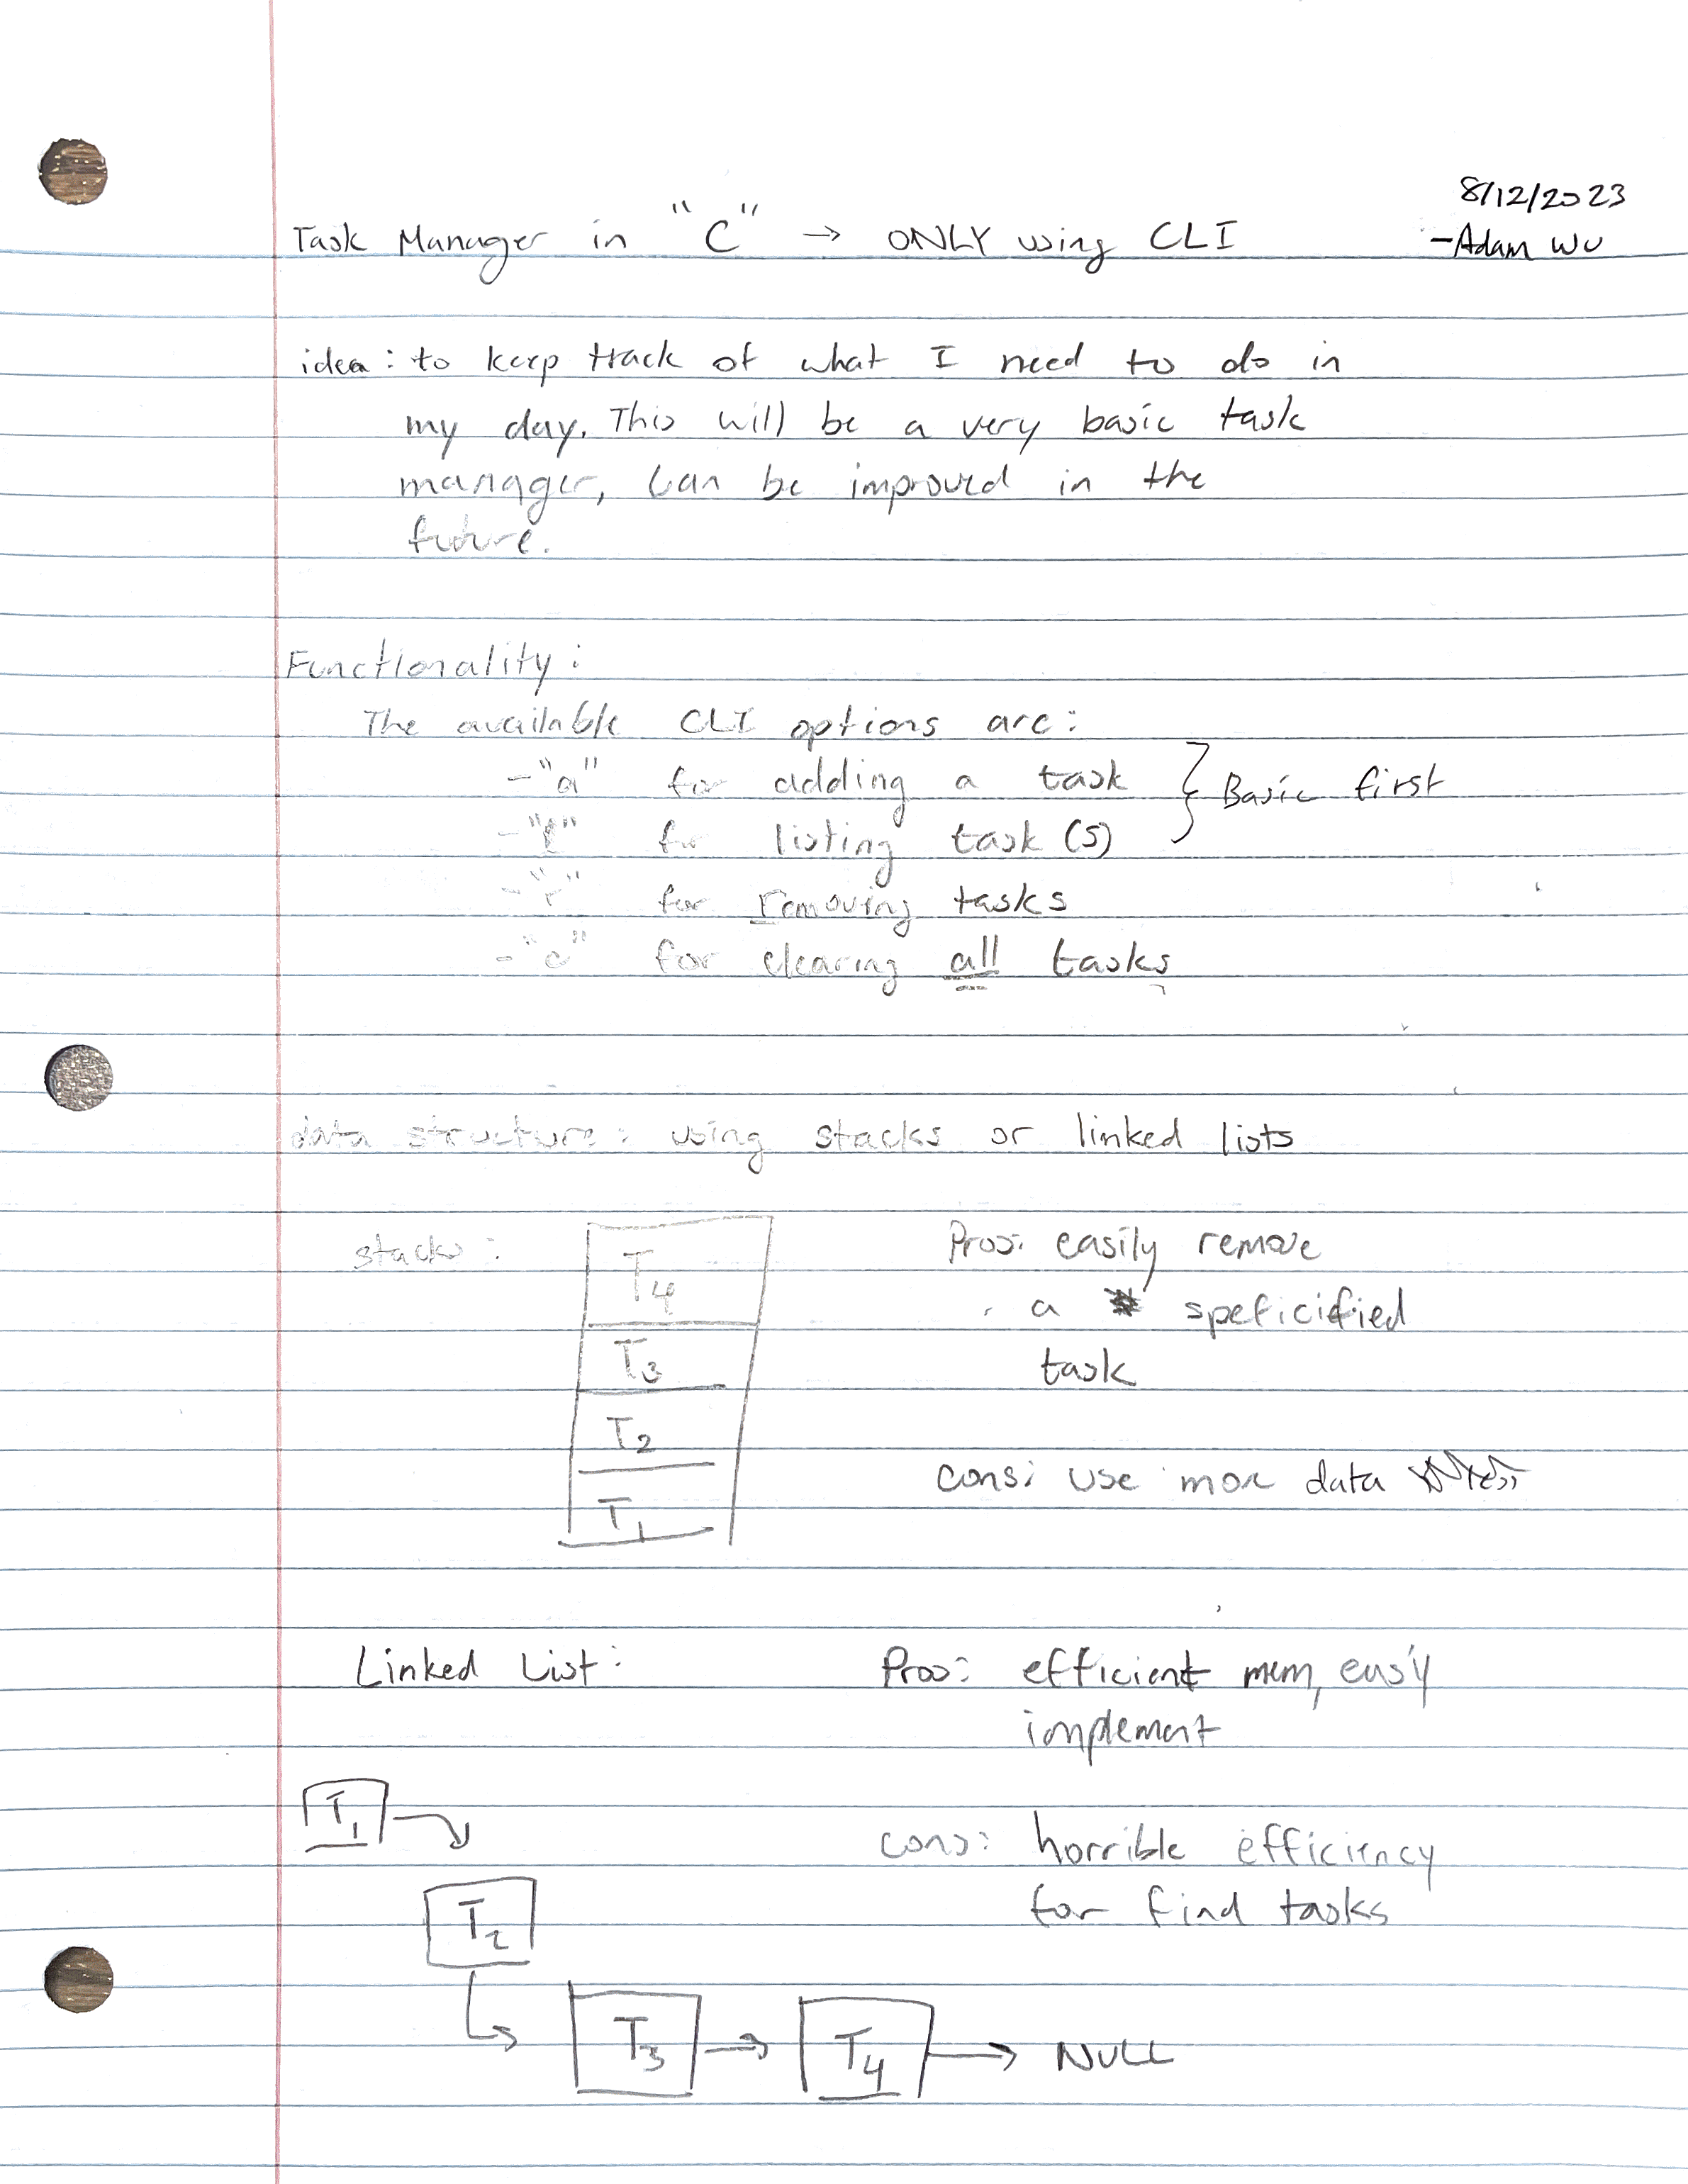 8/12/2023
Task Manager in "C" → ONLY using CLI
-Adam Wu
idea: to keep track of what I need to do in
my day. This will be a very basic task
manager, can be improved in the
future.
Functionality:
The available CLI options are:
-"a" for adding a task } Basic first
-"l" for listing task(s)
-"r" for removing tasks
-"c" for clearing all tasks
data structure: using stacks or linked lists
stacks:
T4
T3
T2
T1
Pros: easily remove
a speficified
task
cons: use more data
Linked List:
Pros: efficient mem, easy
implement
cons: horrible efficiency
for find tasks
T1
T2
T3 → T4 → NULL